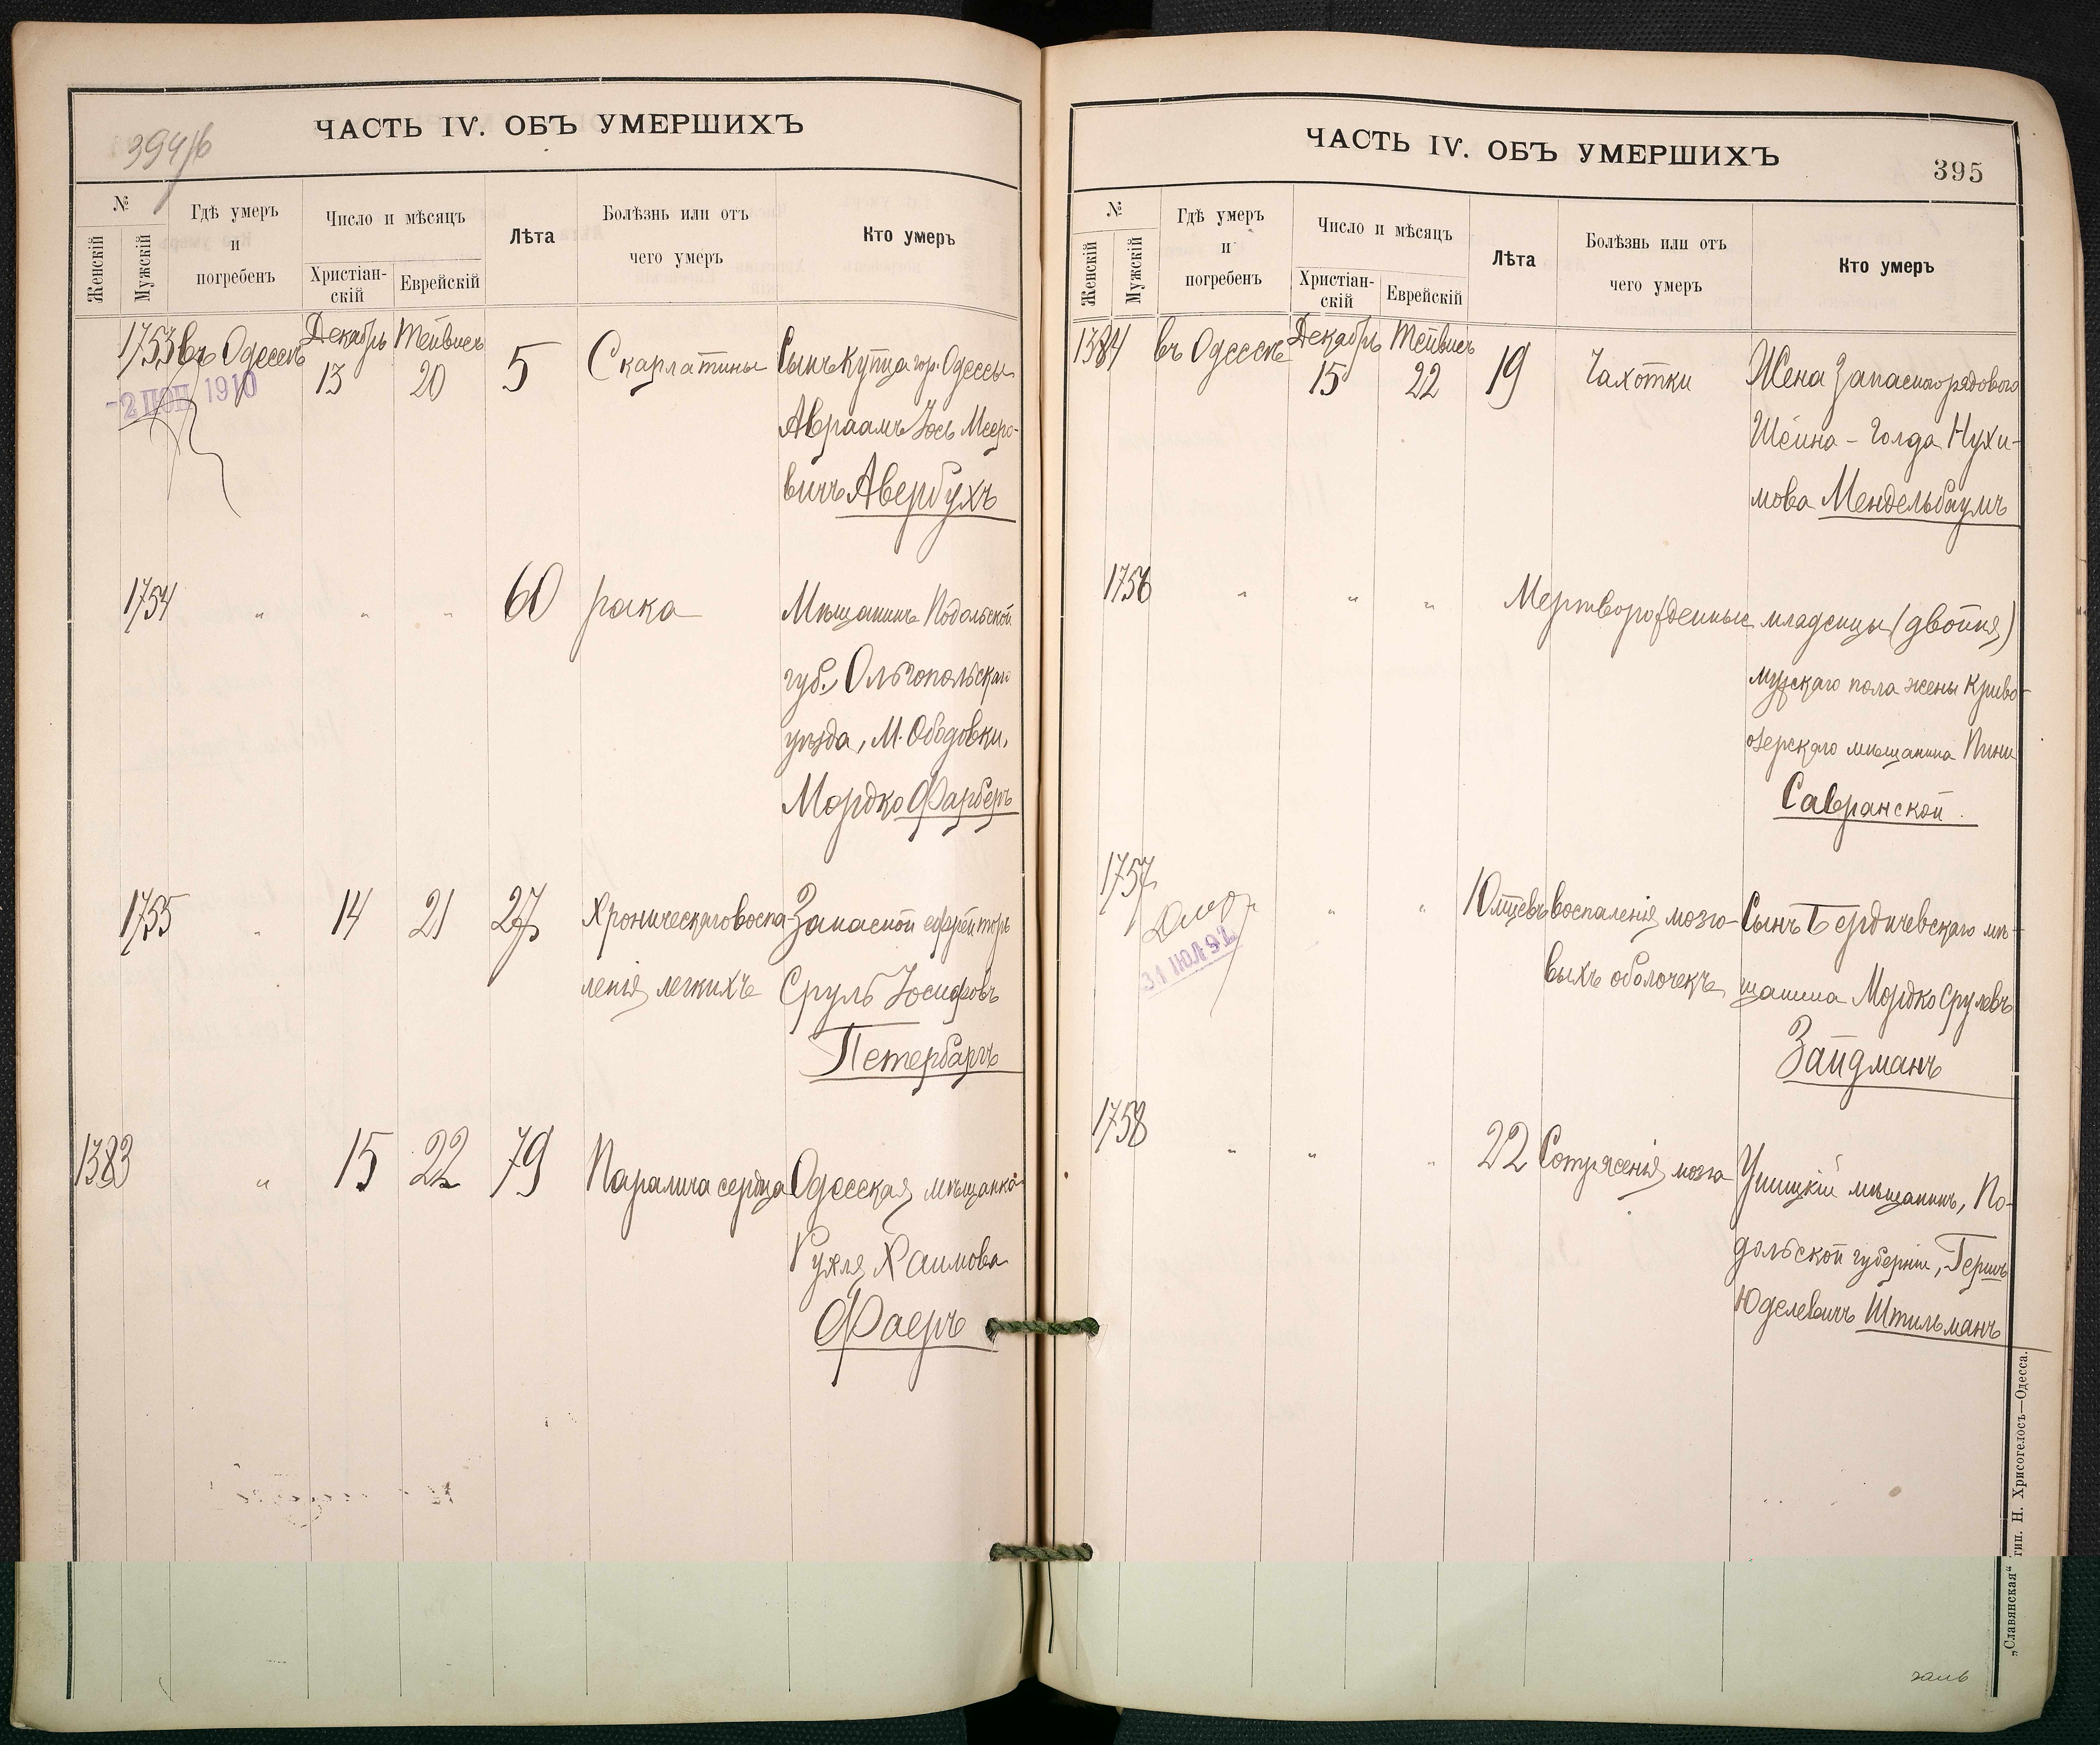 394/б
ЧАСТЬ IV. ОБЪ УМЕРШИХЪ
№
Женскій
Мужскій
Гдѣ умеръ
и
погребенъ
Число и мѣсяцъ
Христіан-
скій
Еврейскій
Лѣта
Болѣзнь или отъ
чего умеръ
Кто умеръ
1753 въ Одессѣ Декабрь 13 Тейвись 20 5 Скарлатины Сынъ Купца гор. Одессы
-2 1910
Авраамъ Іось Мееро-
вичъ Авербухъ
1754 " " " 60 рака Мѣщанинъ Подольской
губ., Ольгопольскаго
уѣзда, М. Ободовки,
Мордко Фарберъ
1755 " 14 21 27 Хроническаго воспа- Запасной ефрейторъ
ленія легкихъ Сруль Іосифовъ
Петербаргъ
1383 " 15 22 79 Паралича сердца Одесская мѣщанка
Рухля Хаимова
Фаеръ
ЧАСТЬ IV. ОБЪ УМЕРШИХЪ
395
№
Женскій
Мужскій
Гдѣ умеръ
и
погребенъ
Число и мѣсяцъ
Христіан-
скій
Еврейскій
Лѣта
Болѣзнь или отъ
чего умеръ
Кто умеръ
1384 въ Одессѣ Декабрь 15 Тейвись 22 19 Чахотки Жена Запасного рядового
Шейна-Голда Нухи-
мова Мендельбаумъ
1756 " " " Мертворожденные младенцы (двойня)
мужскаго пола жены Криво-
озерскаго мѣщанина Пини
Савранской.
1757 " " 10 мцевъ воспаленія мозго- Сынъ Бердичевскаго мѣ-
31 ІЮЛ 92
выхъ оболочекъ щанина Мордко Срулевъ
Зайдманъ
1758 " " " 22 Сотрясенія мозга Ушицкій мѣщанинъ, По-
дольской губерніи, Гершъ
Юделевичъ Штильманъ
„Славянская“ тип. Н. Хрисогелосъ—Одесса.